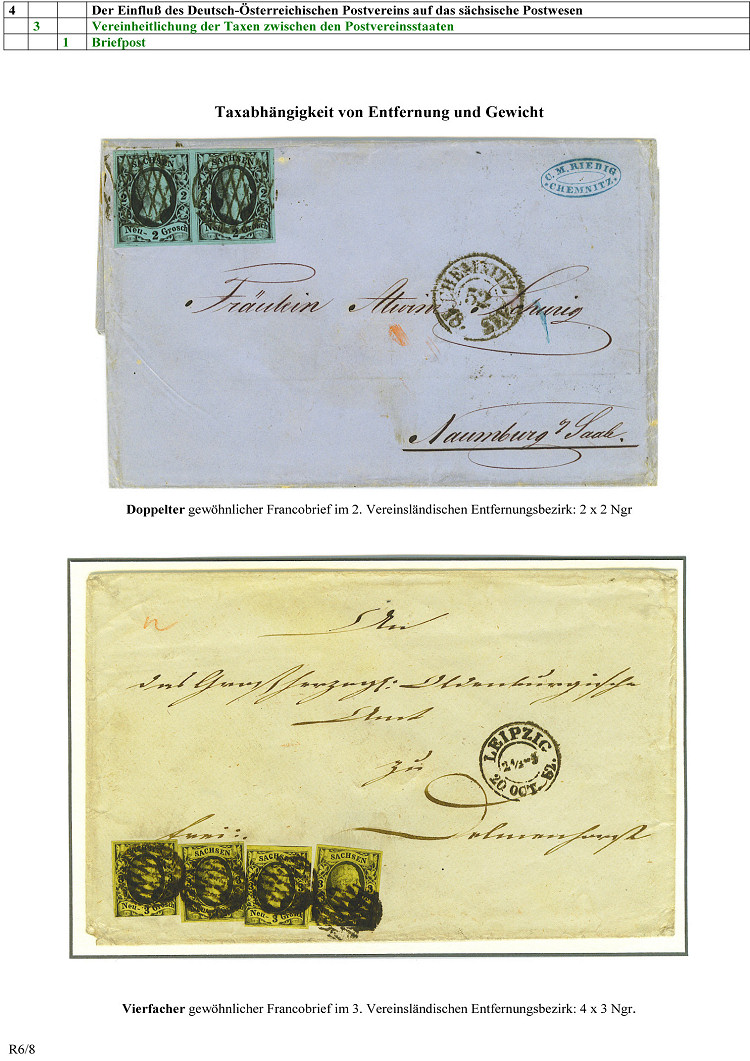 4 Der Einfluß des Deutsch-Österreichischen Postvereins auf das sächsische Postwesen
3 Vereinheitlichung der Taxen zwischen den Postvereinsstaaten
1 Briefpost
Taxabhängigkeit von Entfernung und Gewicht
SACHSEN SACHSEN
2 2 2
Neu- 2 Grosch Neu- 2 Grosch
C. M. RIEDIG
CHEMNITZ.
CHEMNITZ
52
Fräulein
Naumburg a/Saale.
Doppelter gewöhnlicher Francobrief im 2. Vereinsländischen Entfernungsbezirk: 2 x 2 Ngr
An
das Großherzogl: Oldenburgische
Amt
zu
LEIPZIG
20 OCT.
frei:
Delmenhorst
SACHSEN SACHSEN SACHSEN
Neu- 3 Grosch Neu- 3 Grosch Neu- 3 Grosch
Vierfacher gewöhnlicher Francobrief im 3. Vereinsländischen Entfernungsbezirk: 4 x 3 Ngr.
R6/8